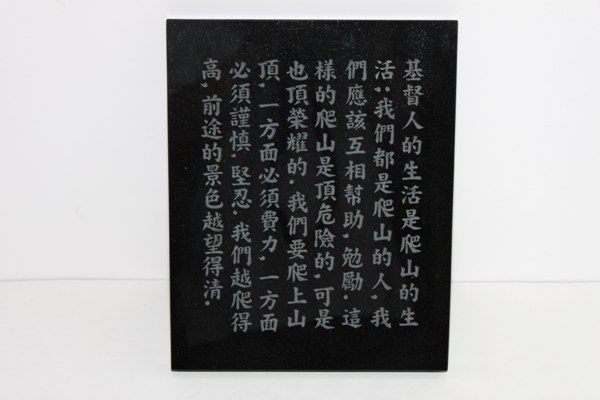 基督人的生活是爬山的生
活;我們都是爬山的人,我
們應該互相幫助,勉勵.這
樣的爬山是頂危險的,可是
也頂榮耀的.我們要爬上山
頂,一方面必須費力,一方面
必須謹慎.堅忍.我們越爬得
高,前途的景色越望得清.